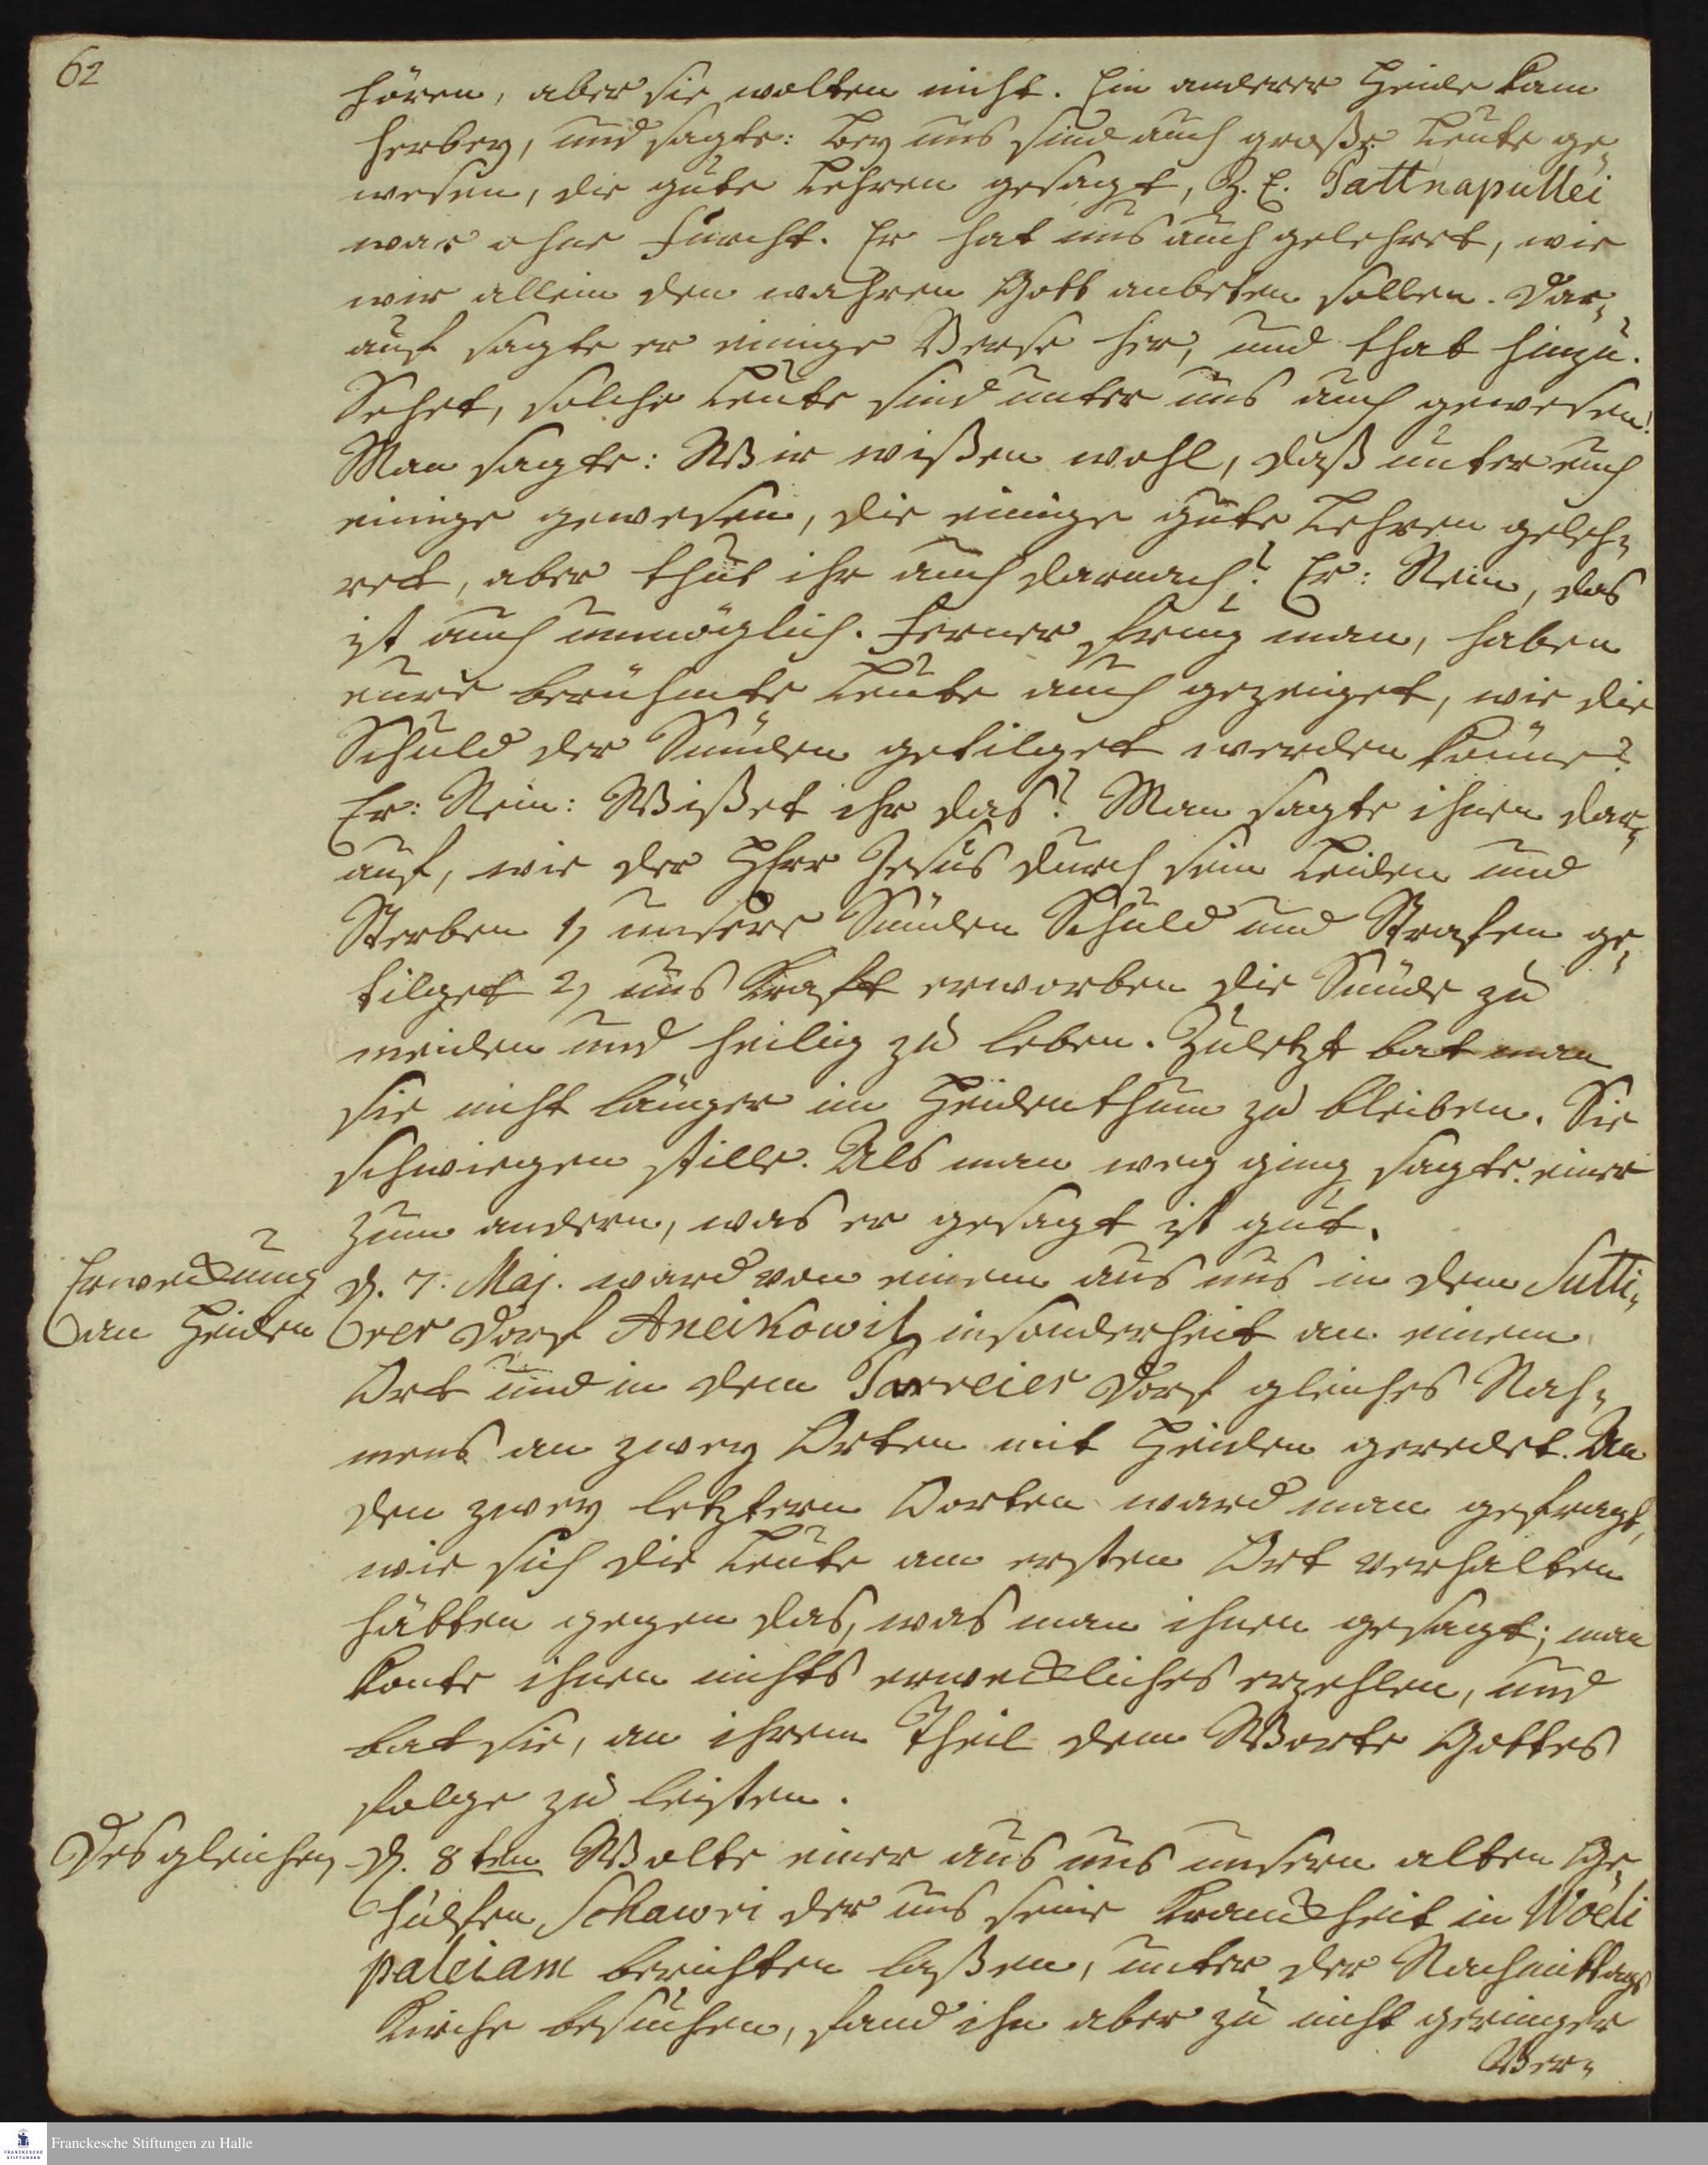 62
hören, aber sie wolten nicht. Ein anderer Heide kam
herbey, und sagte: bey uns sind auch große Leute ge-
wesen, die gute Lehren gesagt, Z. E. Pattnapullei
war ohne Furcht. Er hat uns auch gelehret, wie
wir allein den wahren Gott anbeten sollen. Dar-
auf sagte er einige Verse her, und that hinzu.
Sehet, solche Leute sind unter uns auch gewesen!
Man sagte: Wir wißen wohl, daß unter euch
einige gewesen, die einige gute Lehren geleh-
ret, aber thut ihr auch darnach? Er: Nein, das
ist auch unmöglich. Ferner frug man, haben
eure berühmte Leute auch gezeiget, wie die
Schuld der Sünden getilget werden könne?
Er: Nein: Wißet ihr das? Man sagte ihnen dar-
auf, wie der HErr Jesus durch sein Leiden und
Sterben 1) unsere Sünden Schuld und Strafen ge-
tilget 2) uns Kraft erworben die Sünde zu
meiden und heilig zu leben. Zuletzt bat man
sie nicht länger im Heidenthum zu bleiben. Sie
schwiegen stille. Als man weg ging sagte einer
zum andern, was er gesagt ist gut.
Erweckung
an Heiden
d. 7. Maj. ward von einem aus uns in dem Sutti-
rer Dorf Aneikowil insonderheit an einem
Ort und in dem Parreier Dorf gleiches Nah-
mens an zwey Orten mit Heiden geredet. An
den zwey letztern Oorten ward man gefragt,
wie sich die Leute am ersten Ort verhalten
hätten gegen das, was man ihnen gesagt; man
konte ihnen nichts erweckliches erzehlen, und
bat sie, an ihrem Theil dem Worte Gottes
folge zu leisten.
Desgleichen
d. 8ten Wolte einer aus uns unsern alten Ge-
hülfen Schawri der uns seine Kranckheit in Wödi
paleiam berichten laßen, unter der Nachmittags
Kirche besuchen, fand ihn aber zu nicht geringer
Ver-
FRANCKESCHE STIFTUNGEN
Franckesche Stiftungen zu Halle